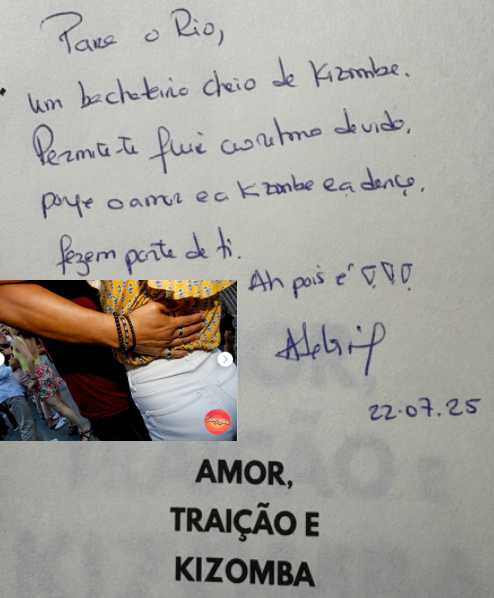 Para o Rio,
um bachateiro cheio de Kizomba.
Permite-te fluir ao ritmo da vida,
porque o amor e a Kizomba e a dança,
fazem parte de ti.
Ah pois é !!!
22.07.25
AMOR,
TRAIÇÃO E
KIZOMBA